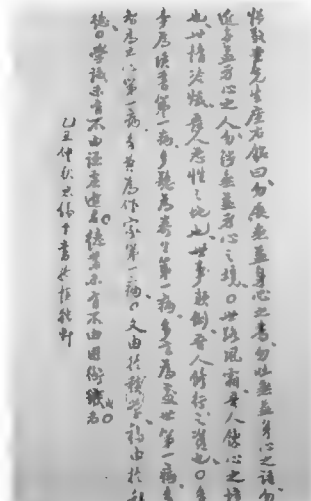 先生座右銘曰勿展無益身心之書勿吐無益身心之話勿
近無益身心之人勿涉無益身心之境○世路風霜吾人鍊心之境
也世情冷煖吾人忍性之地也世事顛倒吾人修行之資也○多
為讀書第一病多聽為養生第一病多言為涉世第一病多
智為立心第一病多費為作家第一病○文由於積學福由於積
德○學識未有不由謙虛進者○德業未有不由因循者○
乙丑仲秋書於